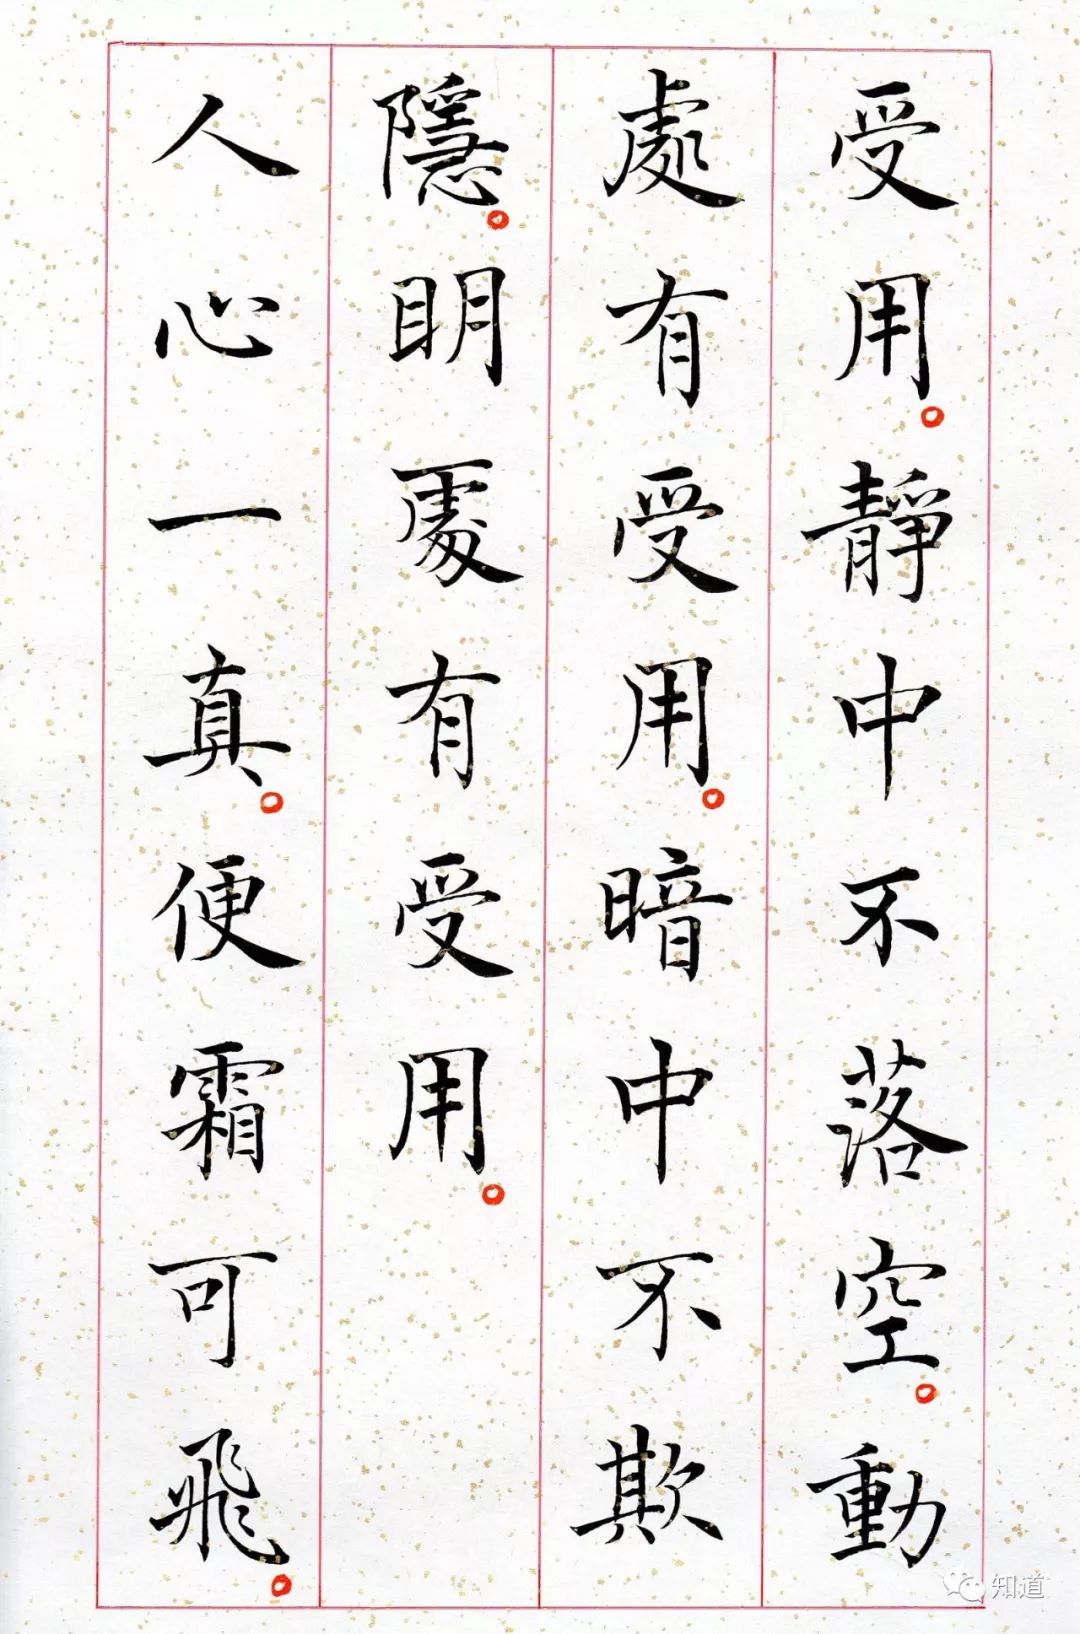 受用。靜中不落空。動
處有受用。暗中不欺
隱。明處有受用。
人心一真。便霜可飛。
知道